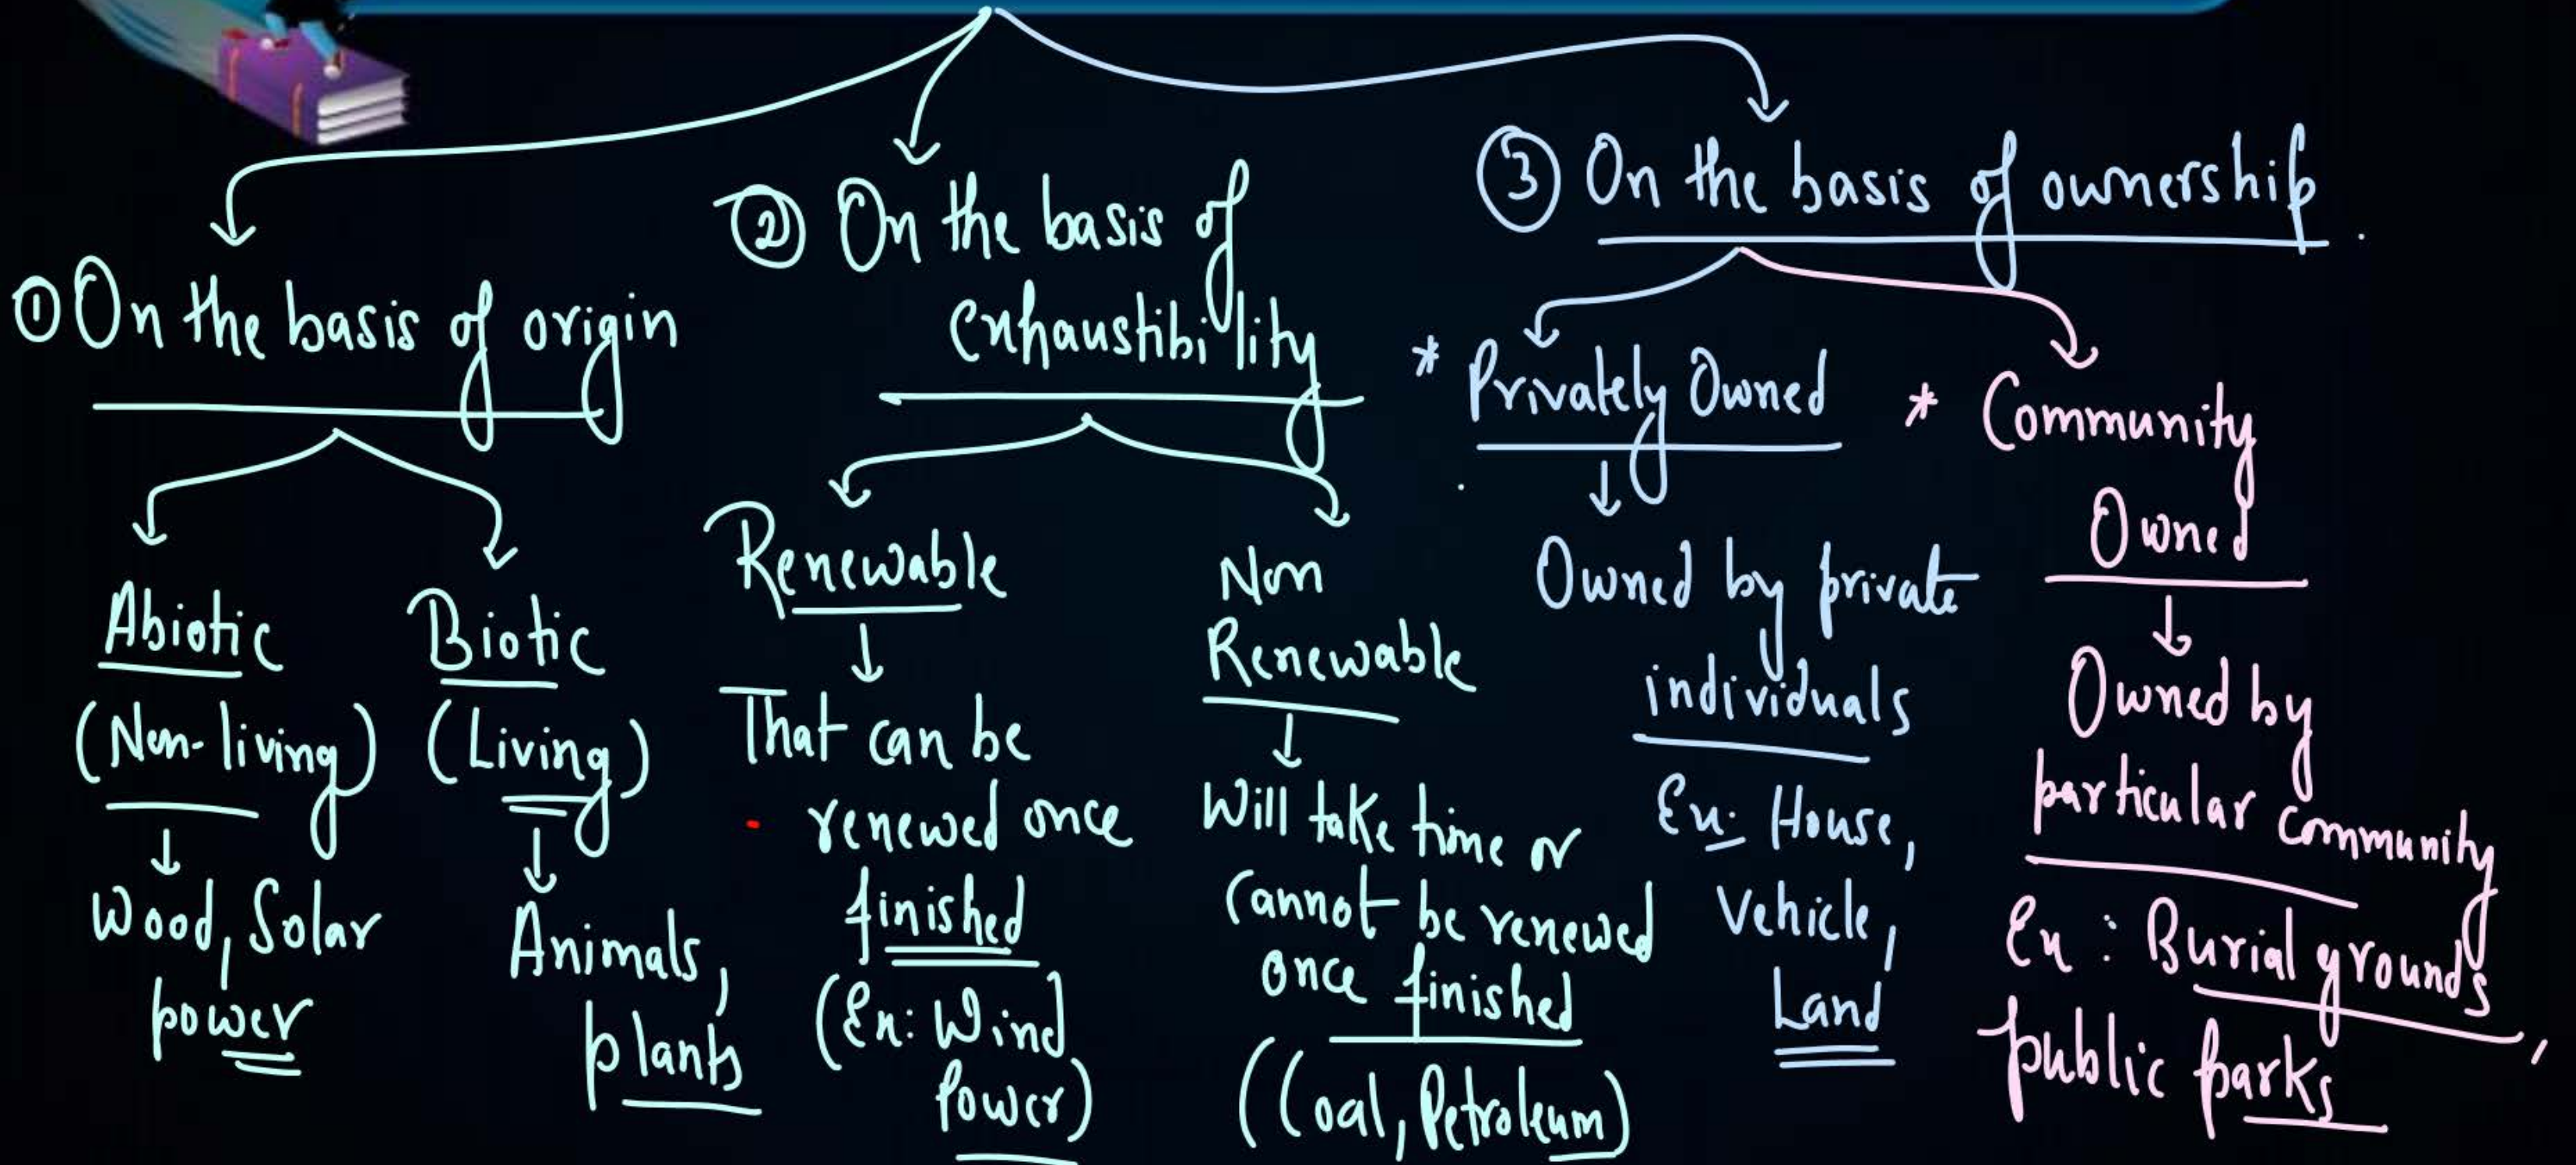 ① On the basis of origin
Abiotic
(Non-living)
Wood, Solar
power
Biotic
(Living)
Animals,
plants
② On the basis of
exhaustibility
Renewable
That can be
renewed once
finished
(Ex: Wind
Power)
Non
Renewable
Will take time or
Cannot be renewed
once finished
(Coal, Petroleum)
③ On the basis of ownership.
* Privately Owned
Owned by private
individuals
Ex: House,
Vehicle,
Land
* Community
Owned
Owned by
particular community
Ex: Burial grounds,
public parks